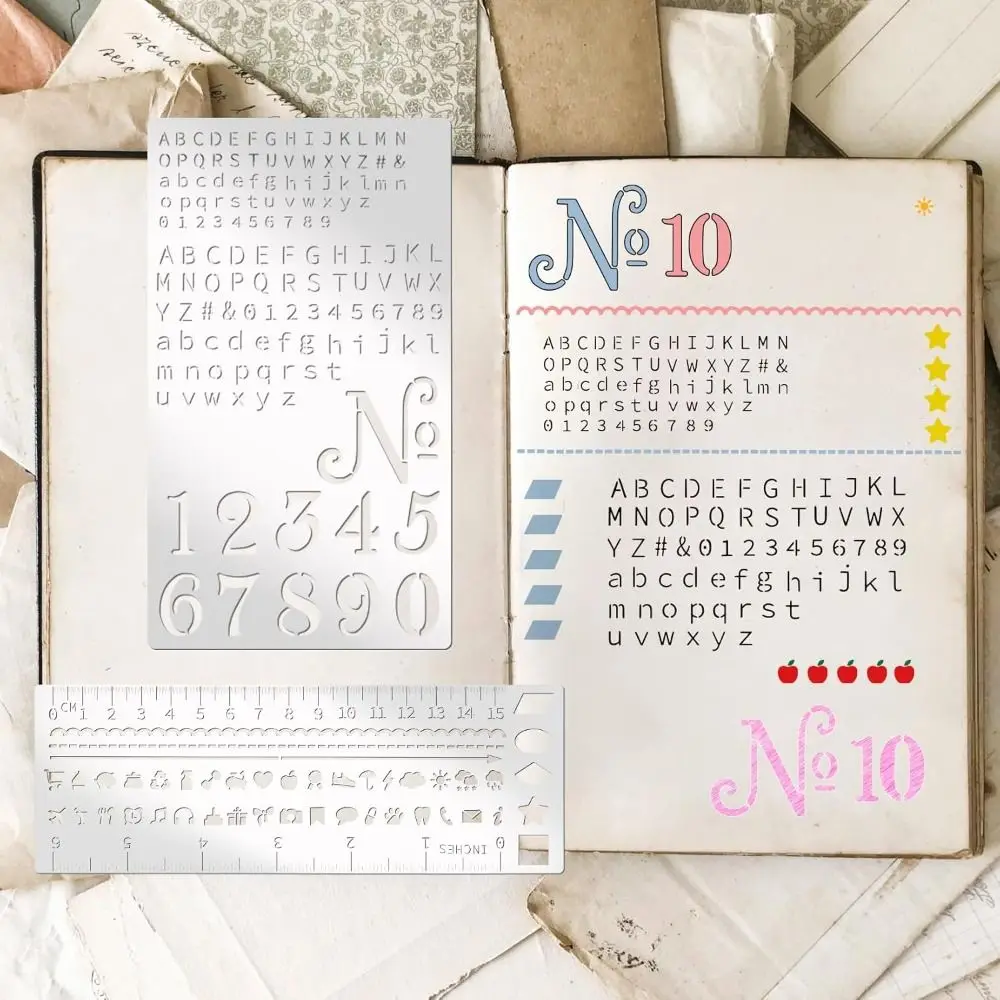 ABCDEFGHIJKLMN
OPQRSTUVWXYZ#&
abcdefghijklmn
opqrstuvwxyz
0123456789
ABCDEFGHIJKL
MNOPQRSTUVWX
YZ#&0123456789
abcdefghijkl
mnopqrst
uvwxyz
№
12345
67890
0 CM 1 2 3 4 5 6 7 8 9 10 11 12 13 14 15
6 5 4 3 2 1 INCHES 0
№ 10
ABCDEFGHIJKLMN
OPQRSTUVWXYZ#&
abcdefghijklmn
opqrstuvwxyz
0123456789
ABCDEFGHIJKL
MNOPQRSTUVWX
YZ#&0123456789
abcdefghijkl
mnopqrst
uvwxyz
№ 10